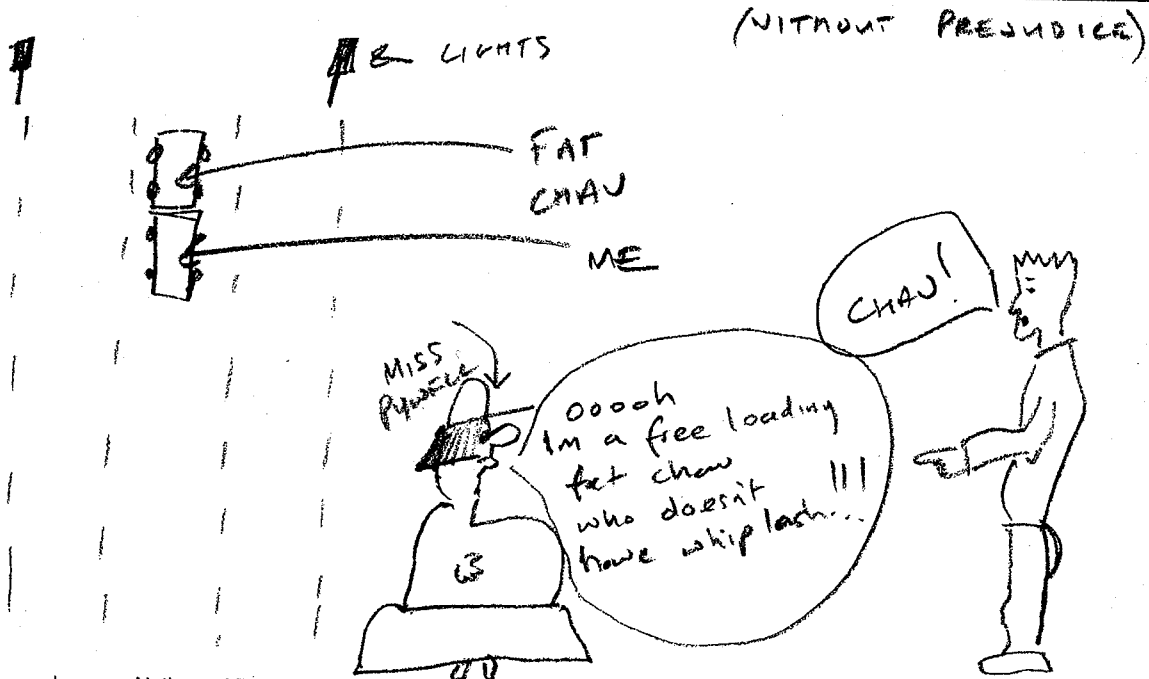 (WITHOUT PREJUDICE)
& LIGHTS
FAT
CHAV
ME
CHAV!
MISS
PYWELL
ooooh
Im a free loading
fat chav
who doesn't
have whiplash...!!!